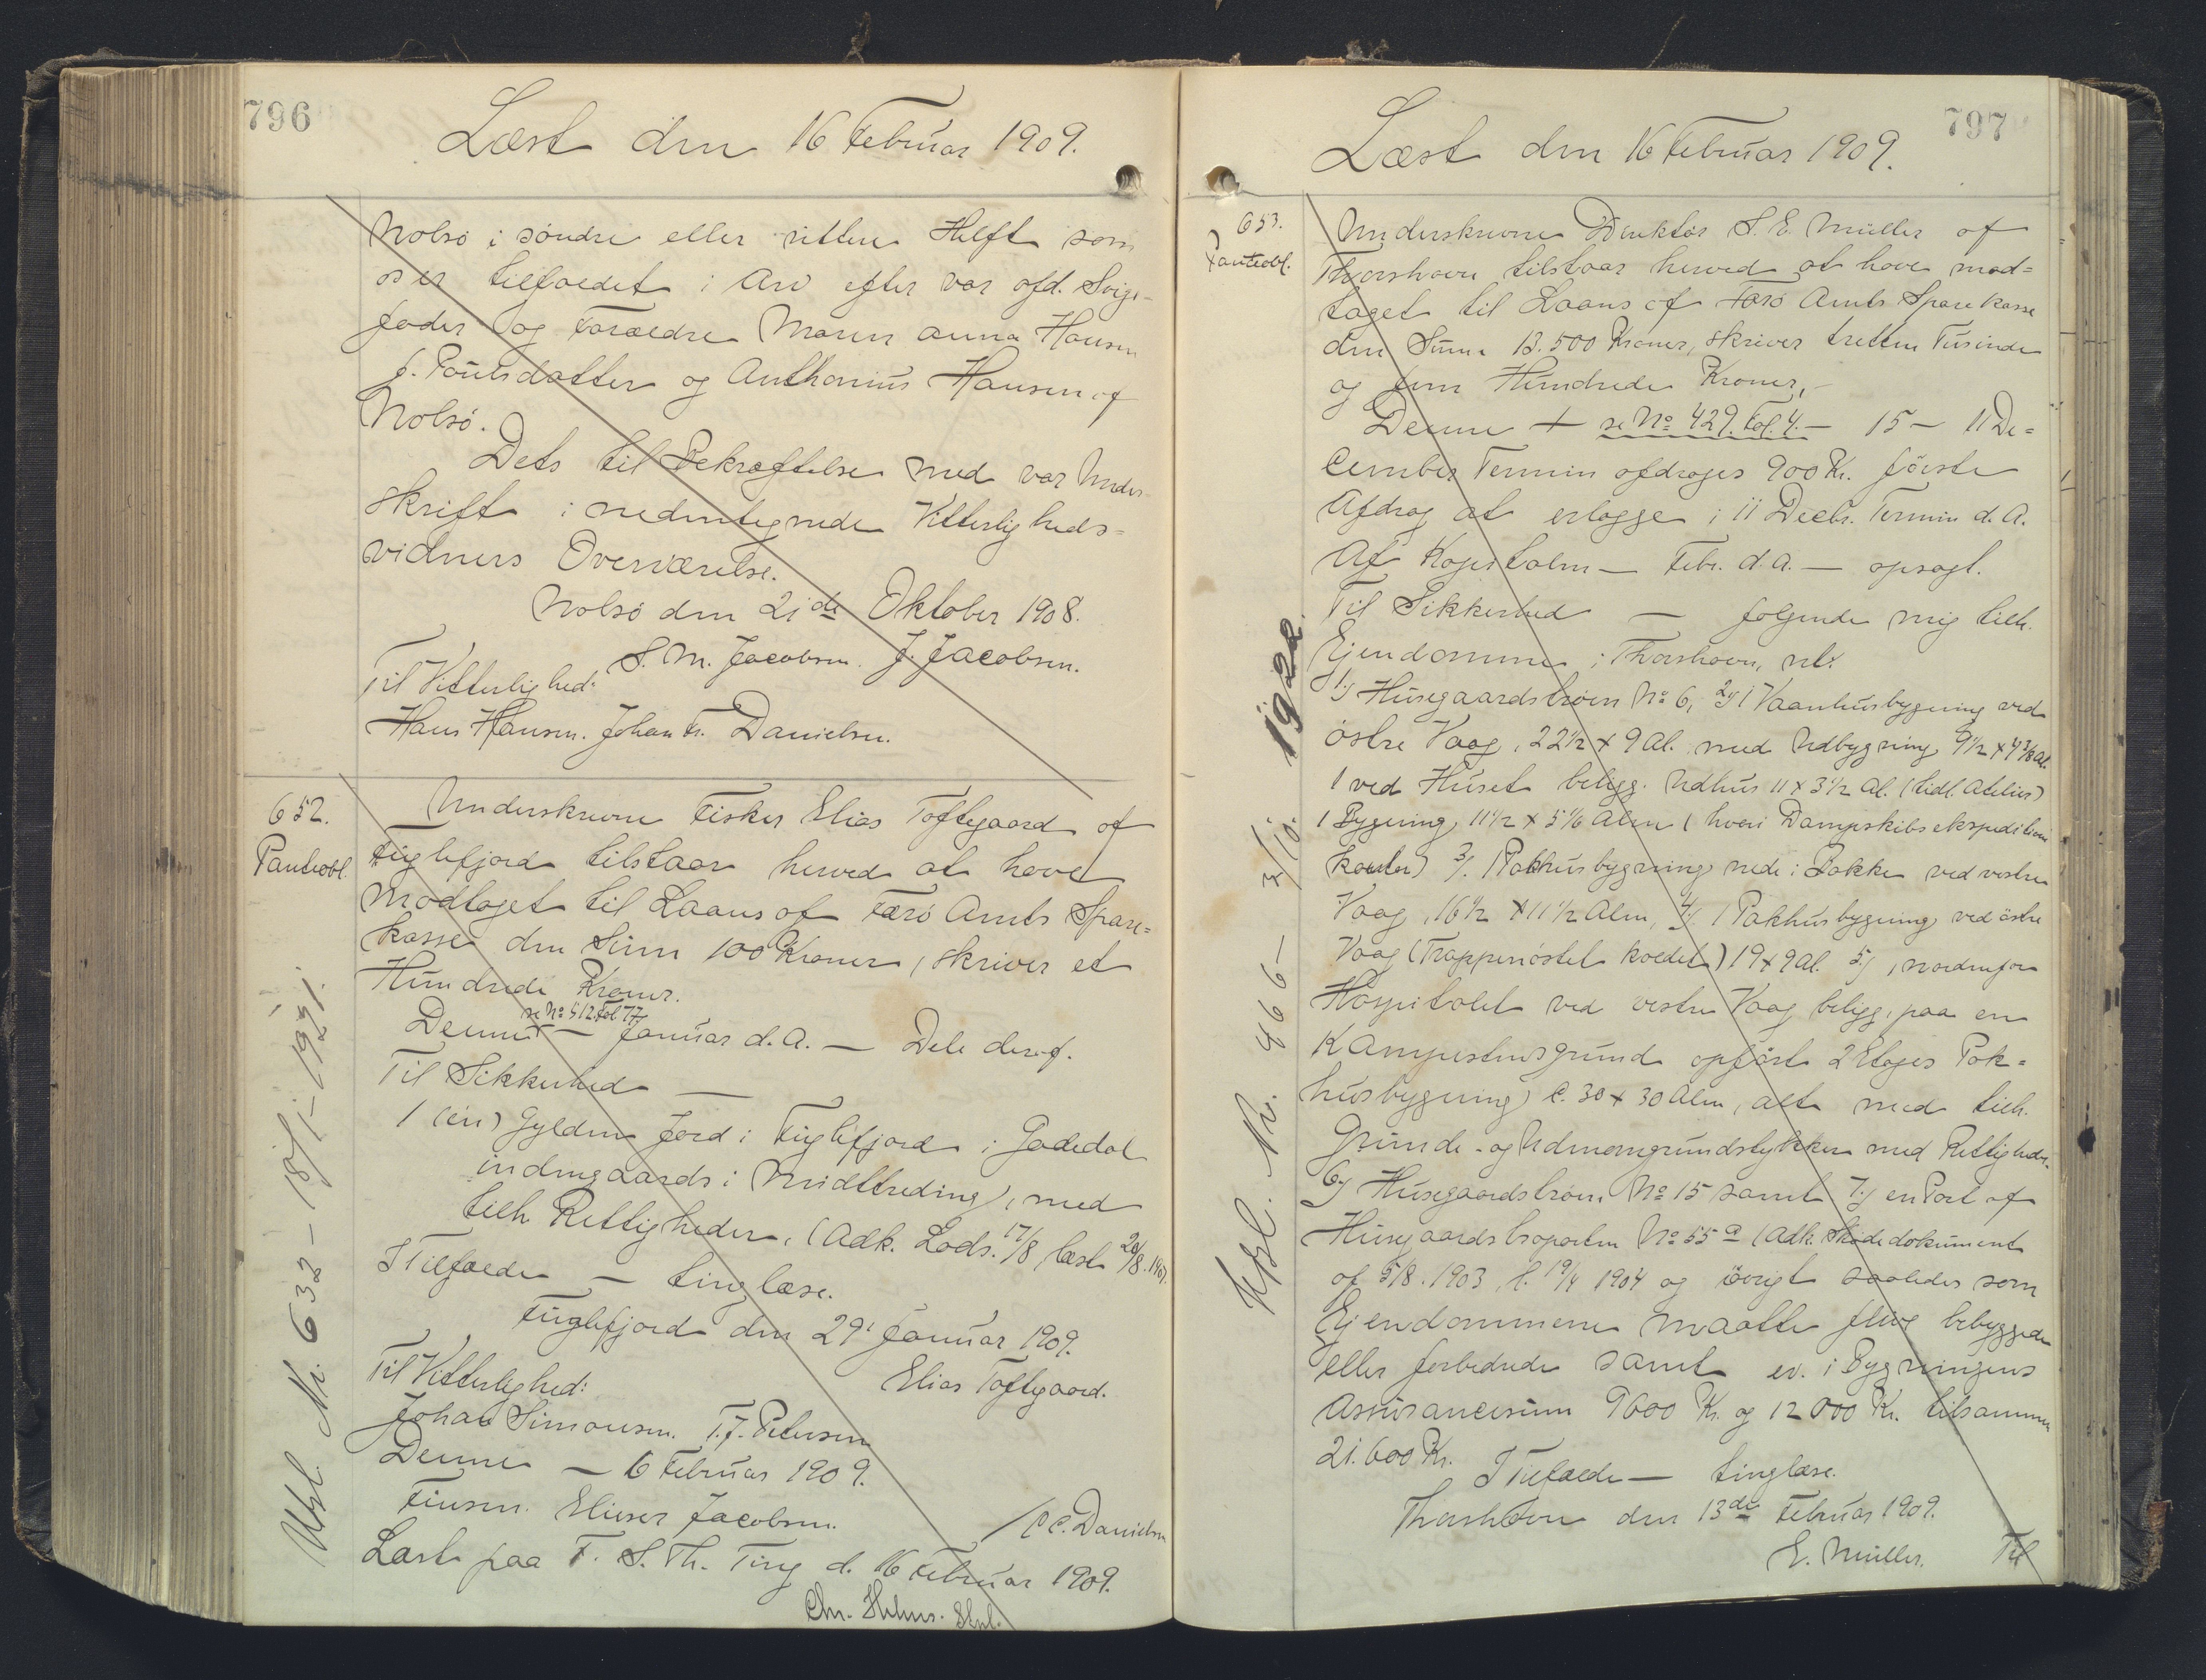 796
Læst den 16 Februar 1909.
Nolsö i söndre eller sittene Helft som
os er tilfaldet i Arv efter vor afd. Svige-
fader og Forældre Maren Anna Hansen
f. Poulsdatter og Anthonius Hansen af
Nolsö.
Dets til Bekræftelse med vor Under
skrift i nedentegnede Vitterligheds-
vidners Overværelse.
Nolsö den 21de Oktober 1908.
S. M. Jacobsen. J. Jacobsen.
Til Vitterlighed:
Hans Hansen. Johan Fr. Danielsen.
652.
Panteobl.
Underskrevne Fisker Elias Toftegaard af
Fuglefjord tilstaar herved at have
modtaget til Laans af Færö Amts Spare-
kasse den Sum 100 Kroner, skriver et
Hundrede Kroner.
se No 512. Fol. 77.
Denne — Januar d. A. — Dele deraf.
Til Sikkerhed —
1 (en) Gylden Jord i Fuglefjord i Gadedal
indengaards i Midttreding, med
tilh. Rettigheder, (Adk. Lods. 17/8, læst 20/8. 1907.
I Tilfælde — tinglæse.
Fuglefjord den 29' Januar 1909.
Til Vitterlighed: Elias Toftegaard.
Johan Simonsen. T. J. Petersen
Denne — 6 Februar 1909.
Finsen. Elieser Jacobsen. / C. C. Danielsen
Læst paa F. S. Th. Ting d. 16 Februar 1909.
Chr. Helms. Stpl.
Udsl. Nr. 632 – 18/1–1921.
797
Læst den 16 Februar 1909.
653.
Panteobl.
Underskrevne Direktör S. E. Müller af
Thorshavn tilstaar herved at have mod-
taget til Laans af Færö Amts Sparekasse
den Sum 13.500 Kroner, skriver tretten Tusinde
og fem Hundrede Kroner,–
Denne + se No 429. Fol. 4.– 15 – 11 De-
cember Termin afdrages 900 Kr. förste
Afdrag at erlægge i 11 Decbr. Termin d. A.
Af Kapitalen — Febr. d. A. — opsagt.
Til Sikkerhed — följende mig tilh.
Ejendomme i Thorshavn, nl:
1/ Husegaardströen No 6, 2/ 1 Vaanhusbygning ved
östre Vaag, 22 1/2 x 9 Al. med Udbygning 9 1/2 x 4 3/8 Al.
1 ved Huset beligg. Udhus 11 x 3 1/2 Al. (tidl. Atelier)
1 Bygning 11 1/2 x 5 1/6 Alen (hvori Dampskibsekspedition
kontor) 3/ 1 Pakhusbygning nede i Bakke ved vestre
Vaag, 16 1/2 x 11 1/2 Alen, 4/ 1 Pakhusbygning ved östre
Vaag (Trappenöstet kaldet) 19 x 9 Al. 5/ 1 nordenfor
Hospitalet ved vestre Vaag beligg. paa en
Kampestensgrund opfört 2 Etages Pak-
husbygning c. 30 x 30 Alen, alt med tilh.
Grunde- og Udmarsgrundstykker med Rettigheder.
6/ Husegaardströen No 15 samt 7/ en Part af
Husegaardstroparten No 55a (Adk. Skødedokument
af 5/8. 1903, l. 19/4 1904 og iövrigt saaledes som
Ejendommene maatte blive bebyggede
eller forbedrede samt ev. i Bygningens
Assurancesum 9600 Kr. og 12000 Kr. tilsammen
21.600 Kr. I Tilfælde — tinglæse.
Thorshavn den 13de Februar 1909.
E. Müller. Til
Udsl. Nr. 466 – 3/10. 1922.